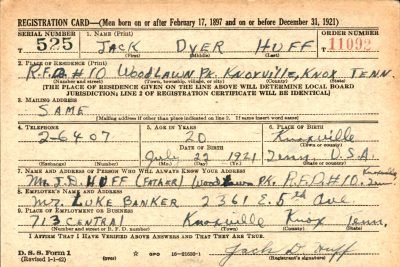 REGISTRATION CARD—(Men born on or after February 17, 1897 and on or before December 31, 1921)
SERIAL NUMBER 1. NAME (Print) ORDER NUMBER
T 525 JACK DYER HUFF T 11092
(First) (Middle) (Last)
2. PLACE OF RESIDENCE (Print)
R.F.D.#10 WOODLAWN PK. KNOXVILLE, KNOX TENN.
(Number and street) (Town, township, village, or city) (County) (State)
[THE PLACE OF RESIDENCE GIVEN ON THE LINE ABOVE WILL DETERMINE LOCAL BOARD
JURISDICTION; LINE 2 OF REGISTRATION CERTIFICATE WILL BE IDENTICAL]
3. MAILING ADDRESS
SAME
[Mailing address if other than place indicated on line 2. If same insert word same]
4. TELEPHONE 5. AGE IN YEARS 6. PLACE OF BIRTH
2-6407 20 Knoxville
DATE OF BIRTH (Town or county)
July 22 1921 Tenn. U.S.A.
(Exchange) (Number) (Mo.) (Day) (Yr.) (State or country)
7. NAME AND ADDRESS OF PERSON WHO WILL ALWAYS KNOW YOUR ADDRESS Knoxville
Mr. J.D. HUFF (FATHER) Woodlawn PK. R.F.D.#10. Tenn
8. EMPLOYER'S NAME AND ADDRESS
Mr. LUKE BANKER 2361 E. 5th Ave
9. PLACE OF EMPLOYMENT OR BUSINESS
713 CENTRAL Knoxville Knox Tenn.
(Number and street or R. F. D. number) (Town) (County) (State)
I AFFIRM THAT I HAVE VERIFIED ABOVE ANSWERS AND THAT THEY ARE TRUE.
D. S. S. Form 1 GPO 16—21630-1 Jack D. Huff
(Revised 1-1-42) (over) (Registrant's signature)